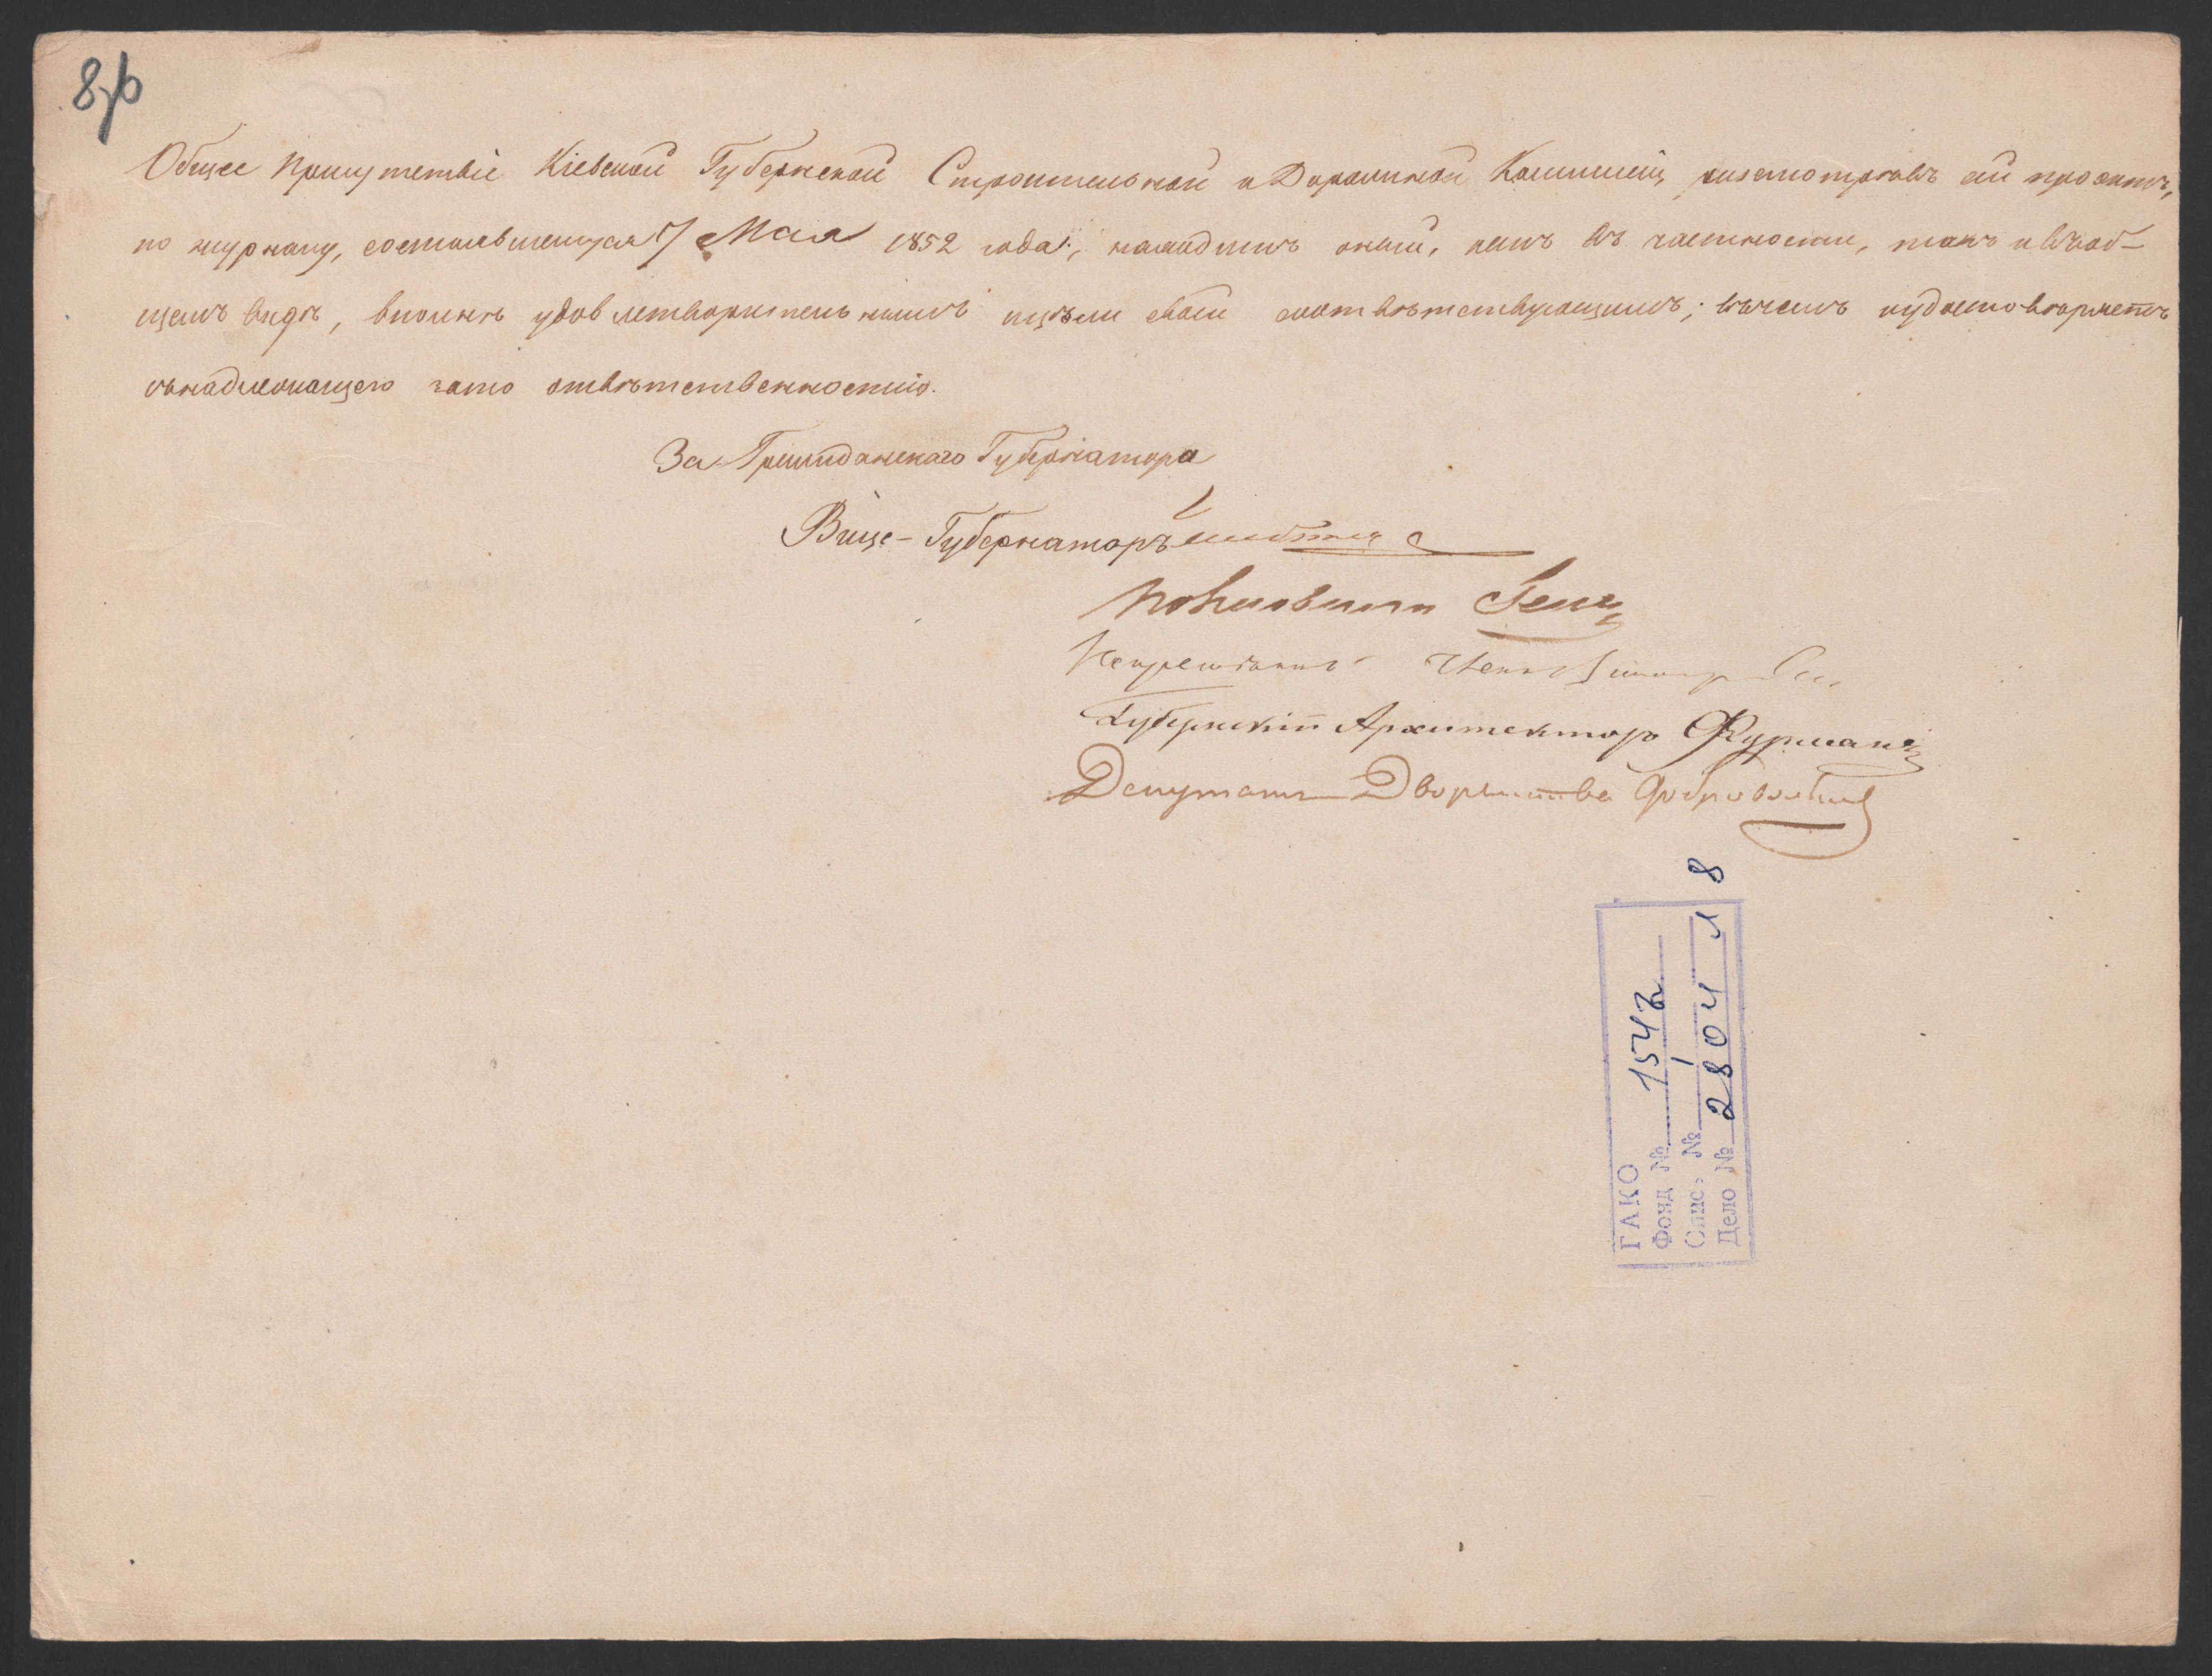 8
Общее Присутствіе Кіевской Губернской Строительной и Дорожной Коммисіи, разсмотрѣвъ сей проэктъ,
по журналу, состоявшемуся 7 Мая 1852 года, находитъ оный, какъ въ частности, такъ и въ об-
щемъ видѣ, вполнѣ удовлетворительнымъ и цѣли своей соотвѣтствующимъ; въ чемъ и удостовѣряетъ
съ надлежащею за то отвѣтственностію.
За Гражданскаго Губернатора
Вице-Губернаторъ
Полковникъ
Непремѣнный Членъ
Губернскій Архитекторъ Фурманъ
Депутатъ Дворянства
ГАКО
Фонд № 1542
Опис. № 1
Дело № 2804 л 8